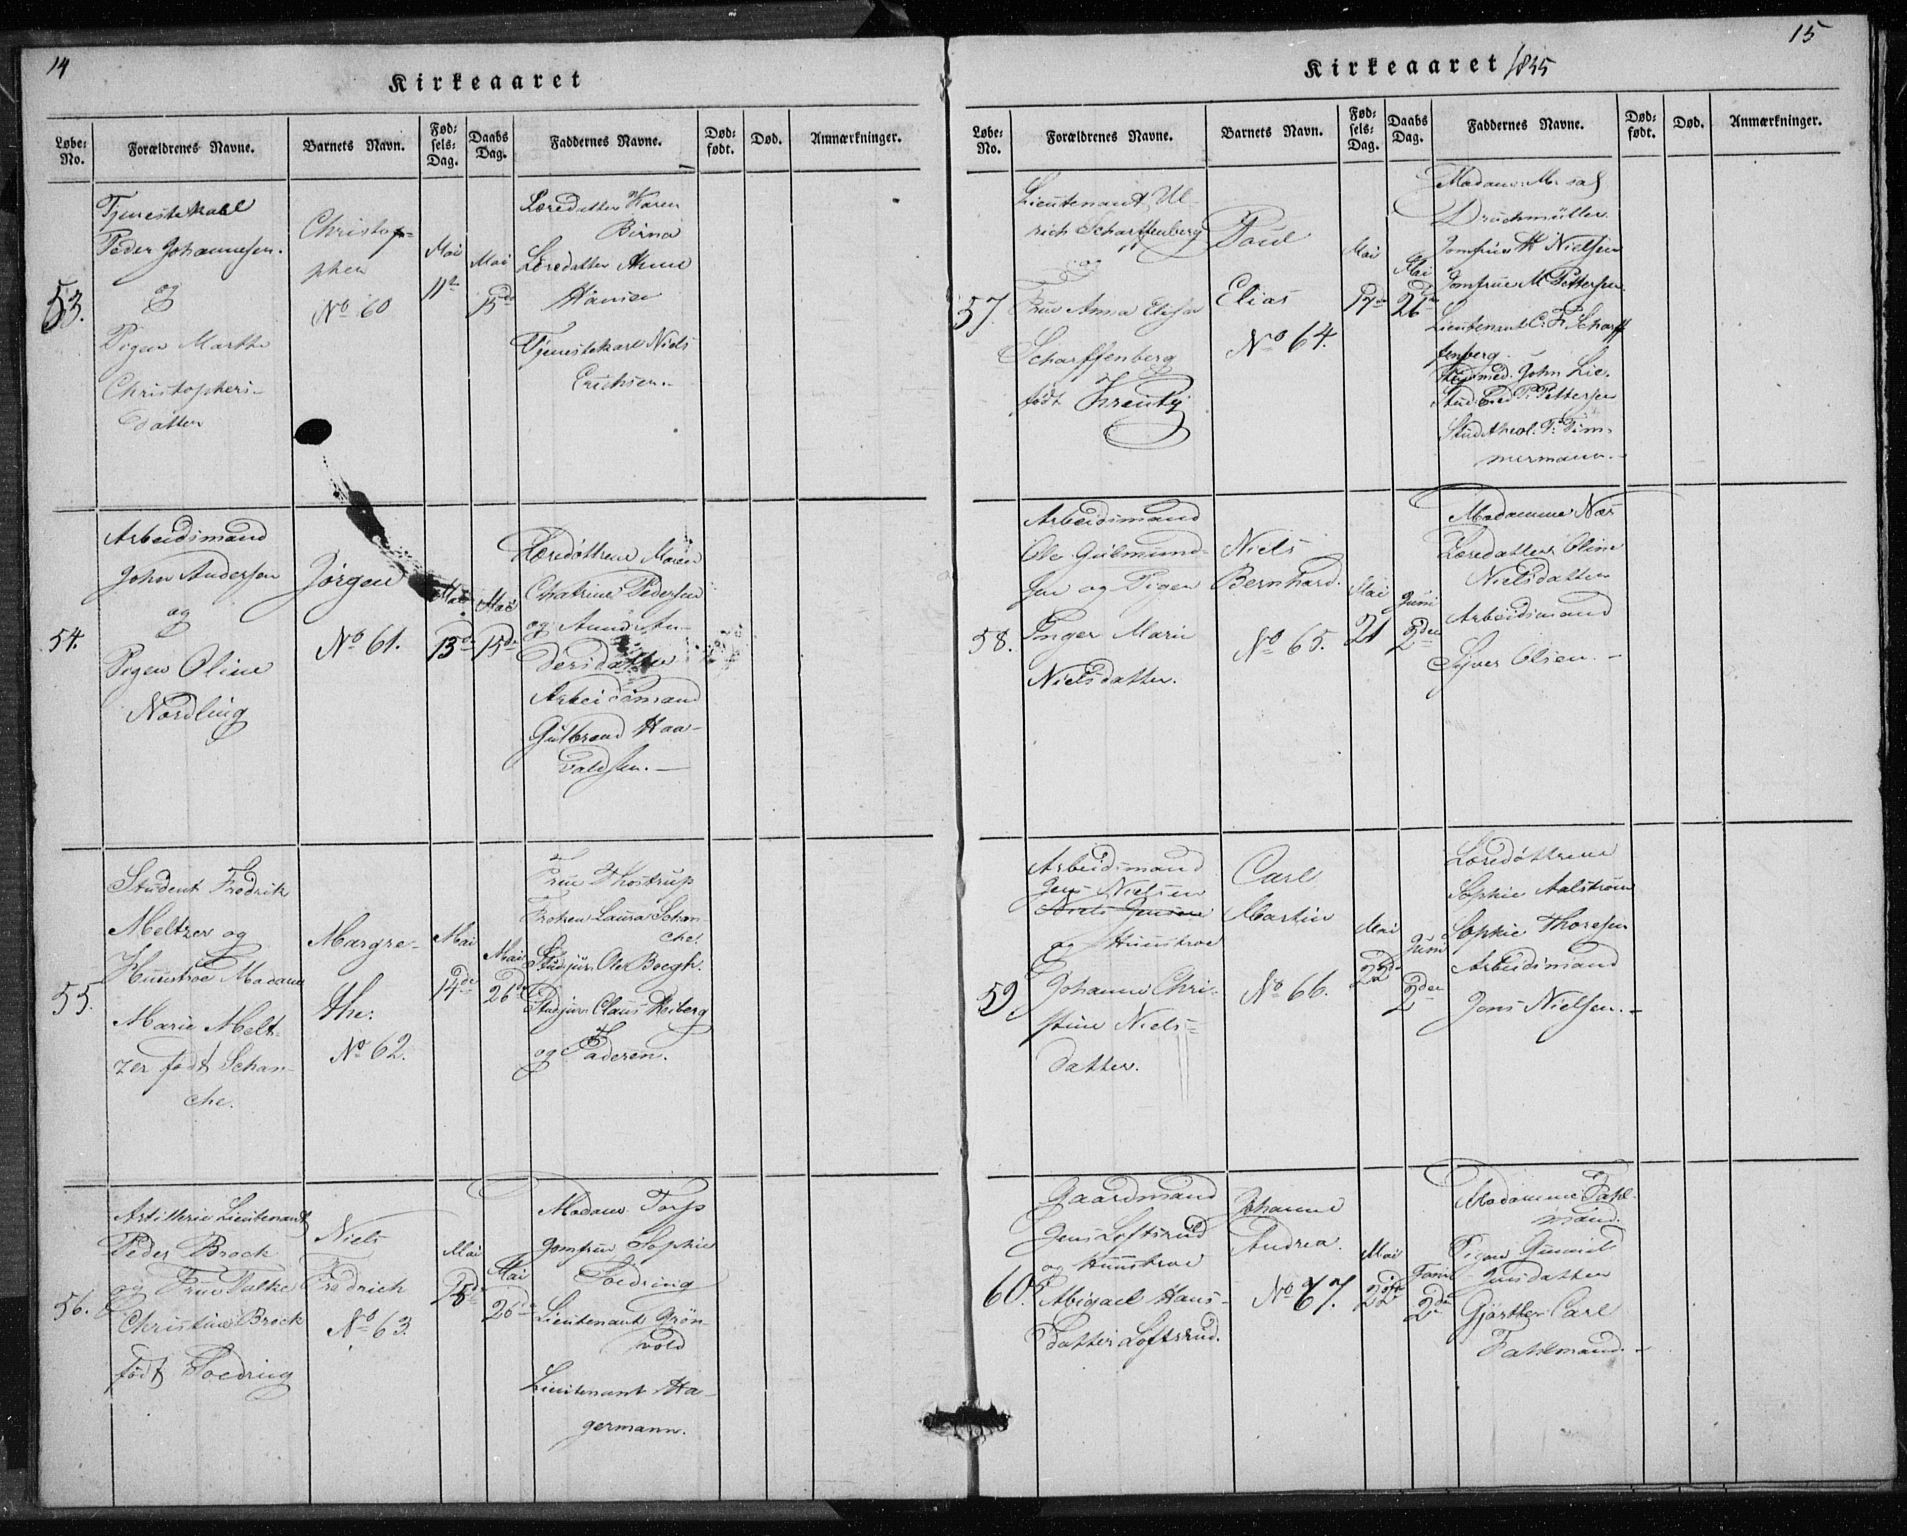 14
Kirkeaaret
Løbe-No.
Forældrenes Navne.
Barnets Navn.
Fød-sels-Dag.
Daabs Dag.
Faddernes Navne.
Død-født.
Død.
Anmærkninger.
53.
Tjenestekarl
Peder Johannesen.
og
Pigen Marthe
Christophers-
datter
Christop-
pher
No 60
Mai
11te
Mai
15de
Læredatter Karen
Læredatter Anne
Hansen
Tjenestekarl Niels
Erichsen.-
54.
Arbeidsmand
John Andersen
og
Pigen Oline
Nordling
Jørgen
No 61.
Mai
13de
Mai
15de
Læredøttrene Maren
Chatrine Pedersen
og
dersdatter
Arbeidsmand
Gulbrand Haa-
valdsen.—
55.
Student Fredrik
Meltzer og
Huustroe Madam
Marie Melt-
zer født Schan-
che.
Margre-
the.
No 62.
Mai
14de
Mai
26de
Frue Thostrup
Frøken Laura Schan
che.
Studjur. Ole Boegh.
Studjur. Claus Heiberg
og Faderen.
56.
Artillerie Lieutenant
Peder Brock
og Frue Falke
Christine Brock
født Soedring
Niels
Fredrich
No 63.
Mai
Mai
26de
Madam Torp
Jomfrue Sophie
Soedring
Lieutenant Grøn-
vold
Lieutenant Ha-
germann.
15
Kirkeaaret 1835
Løbe-No.
Forældrenes Navne.
Barnets Navn.
Fød-sels-Dag.
Daabs Dag.
Faddernes Navne.
Død-født.
Død.
Anmærkninger.
57.
Lieutenant Ul-
rich Scharffenberg
og
Frue Anna Elisa
Scharffenberg
født
Poul
Elias
No 64.
Mai
17de
Mai
26de
Madam M. sal
Druchmüller
Jomfrue H Nielsen
Jomfrue M. Pettersen.
Lieutenant C. F. Scharf
fenberg.
Studmed. John Lie.
Pettersen
Stud theol. F. Tim-
mermann.-
58.
Arbeidsmand
Ole Gulmund-
sen og Pigen
Inger Marie
Nielsdatter.
Niels
Bernhard.
No 65.
Mai
21
Juni
2den
Madamme Næs
Læredatter Oline
Nielsdatter
Arbeidsmand
Syver Olsen.-
59
Arbeidsmand
Jens Nielsen
Niels Jensen
og Huustroe
Johanne Chri-
stine Niels-
datter.
Carl
Martin
No 66.
Mai
22de
Juni
2den
Læredøttrene
Sophie Aalstrøm
Sophie Thoresen
Arbeidsmand
Jens Nielsen.-
60.
Gaardmand
Jens Loftsrud
og Huustroe
Abigael Hans-
datter Loftsrud.
Johanne
Andrea.
No 67.
Mai
22de
Juni
2den
Madamme Fahl
mand.
Pigen Gunnild
Jensdatter
Gjørtler Carl
Fahlmand.-